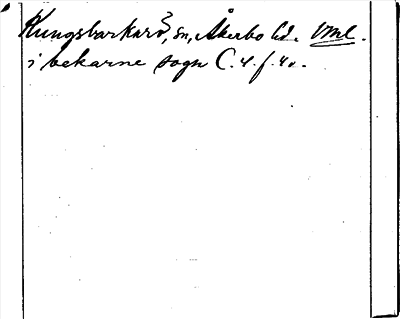 Kungsbarkarö, sn, Åkerbo hd. Vml.
i bekarne sogn C. 4. f. 40.